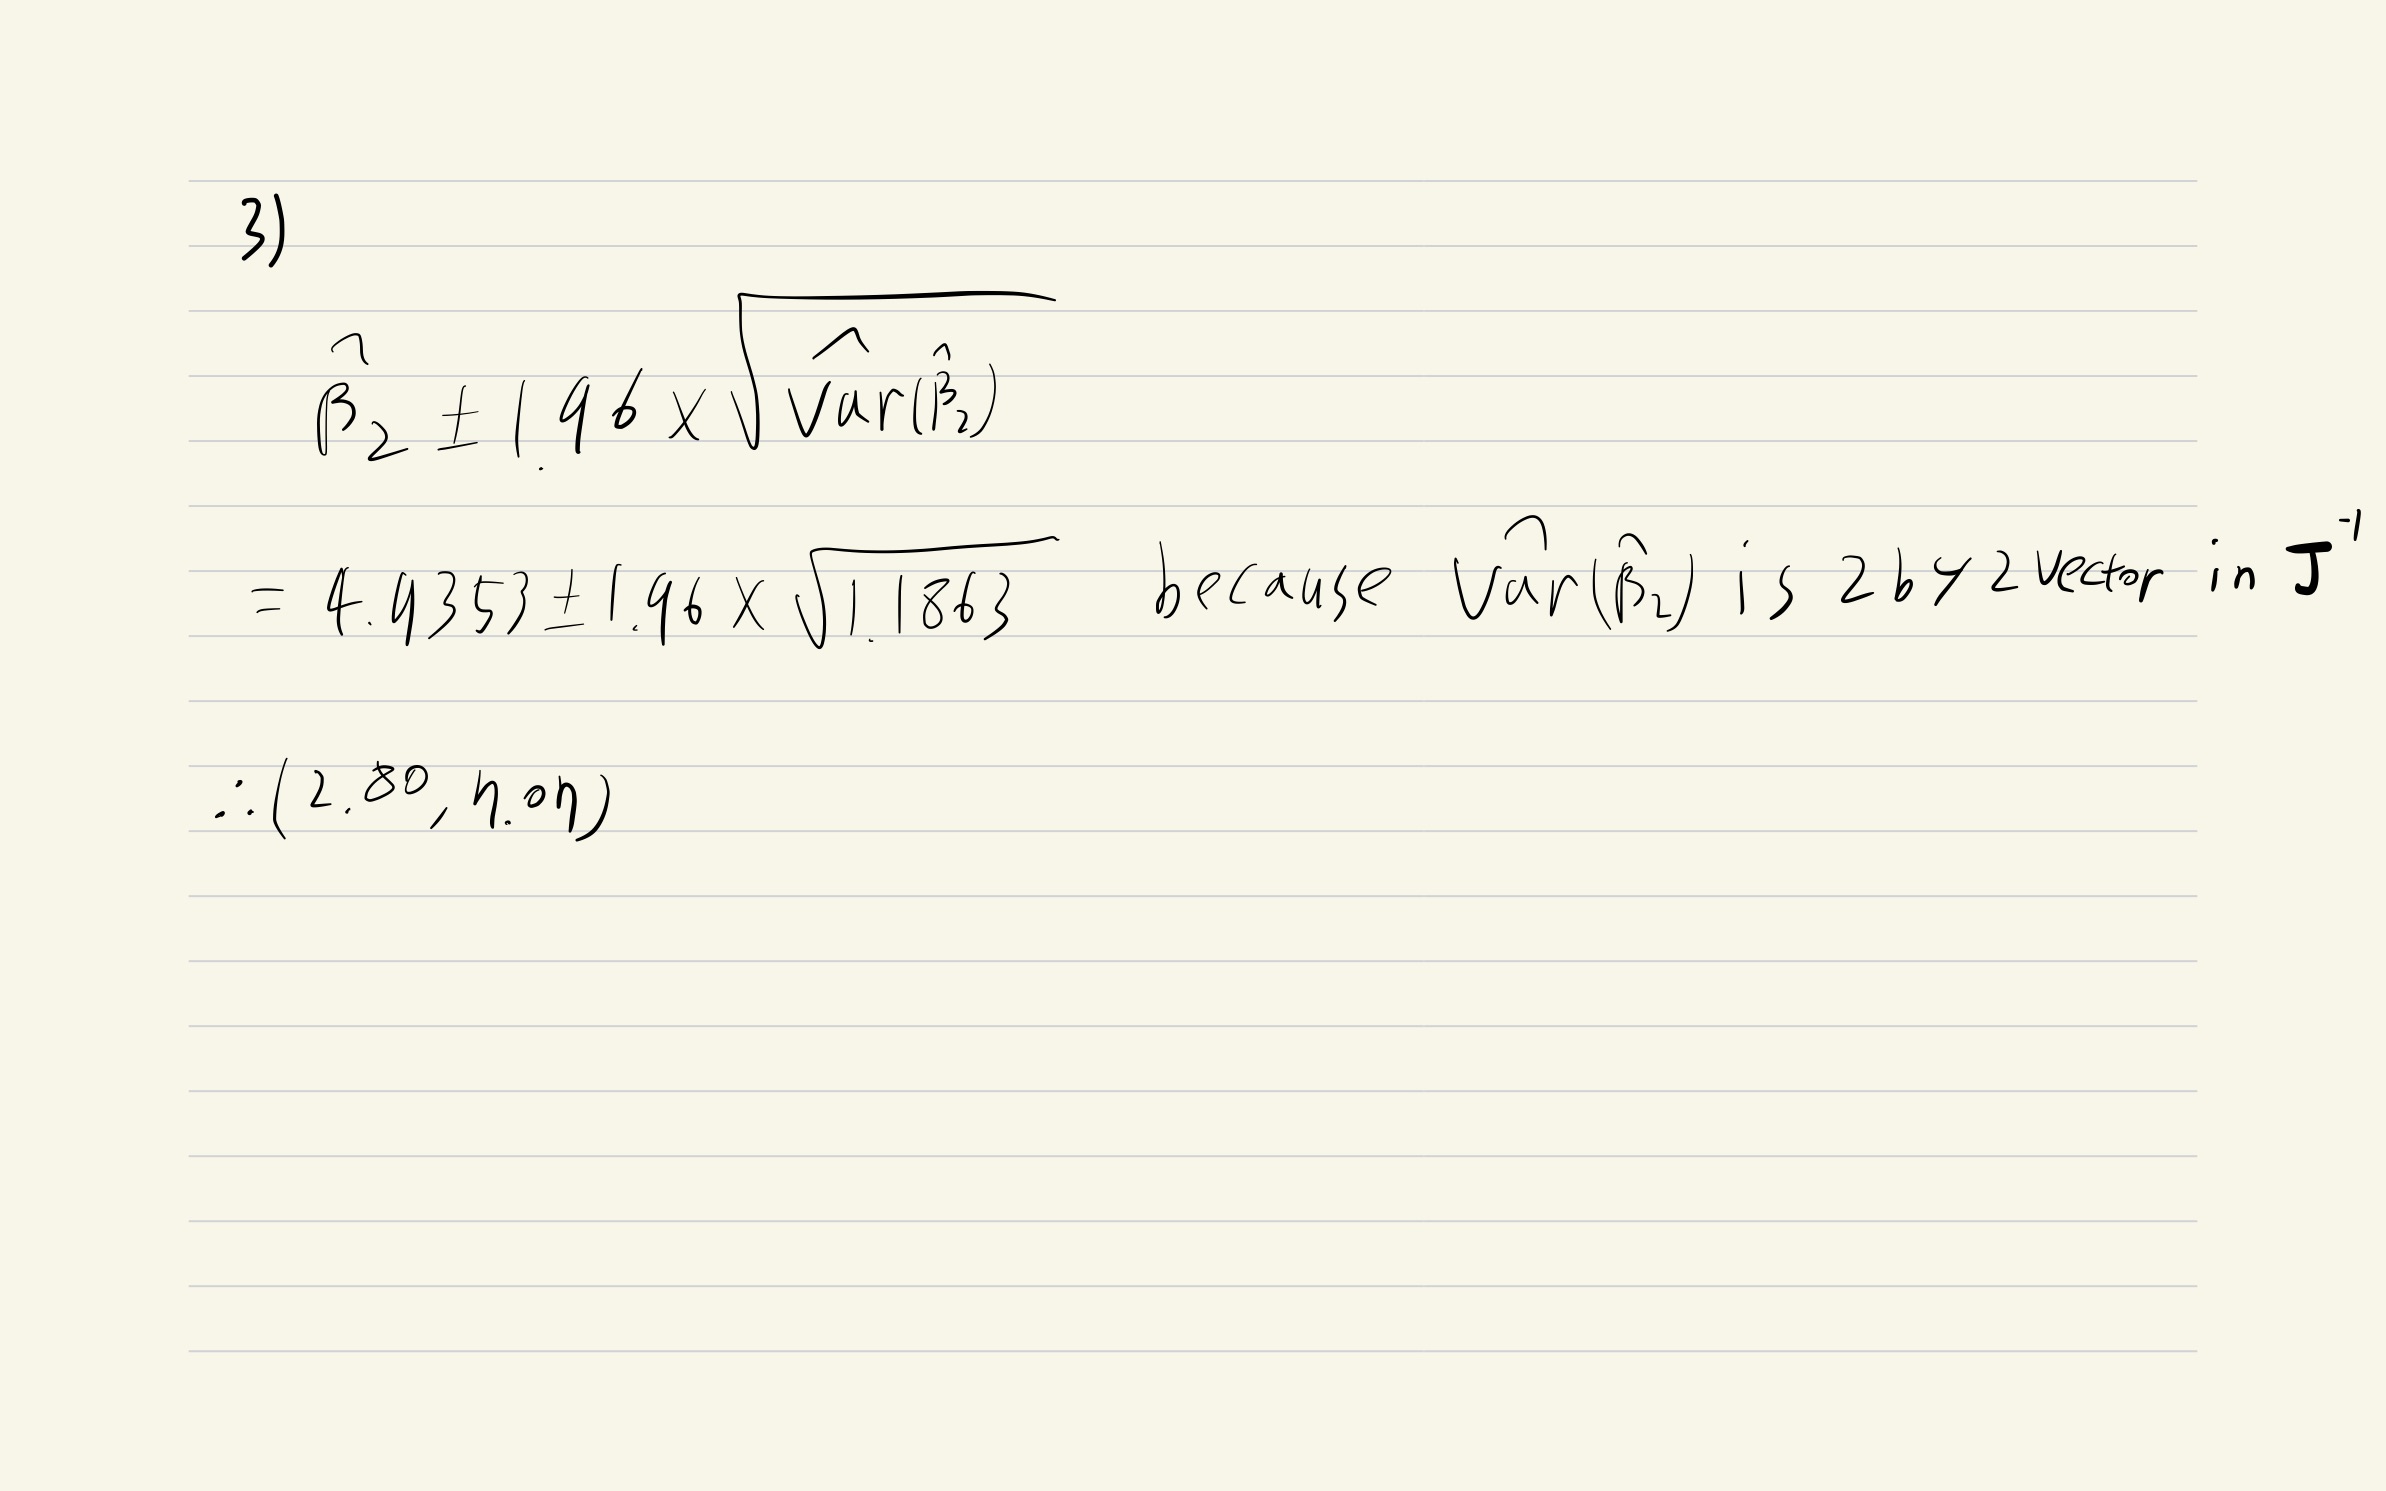 3)
β̂₂ ± 1.96 × √(V̂ar(β̂₂))
= 4.9353 ± 1.96 × √1.1863 because V̂ar(β̂₂) is 2 by 2 vector in J⁻¹
∴ (2.80, 7.07)